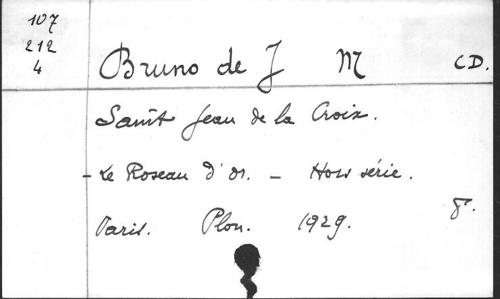 107
212
4
Bruno de J M CD.
Saint Jean de la Croix.
- Le Roseau d'or. - Hors série.
Paris. Plon. 1929. 8°.